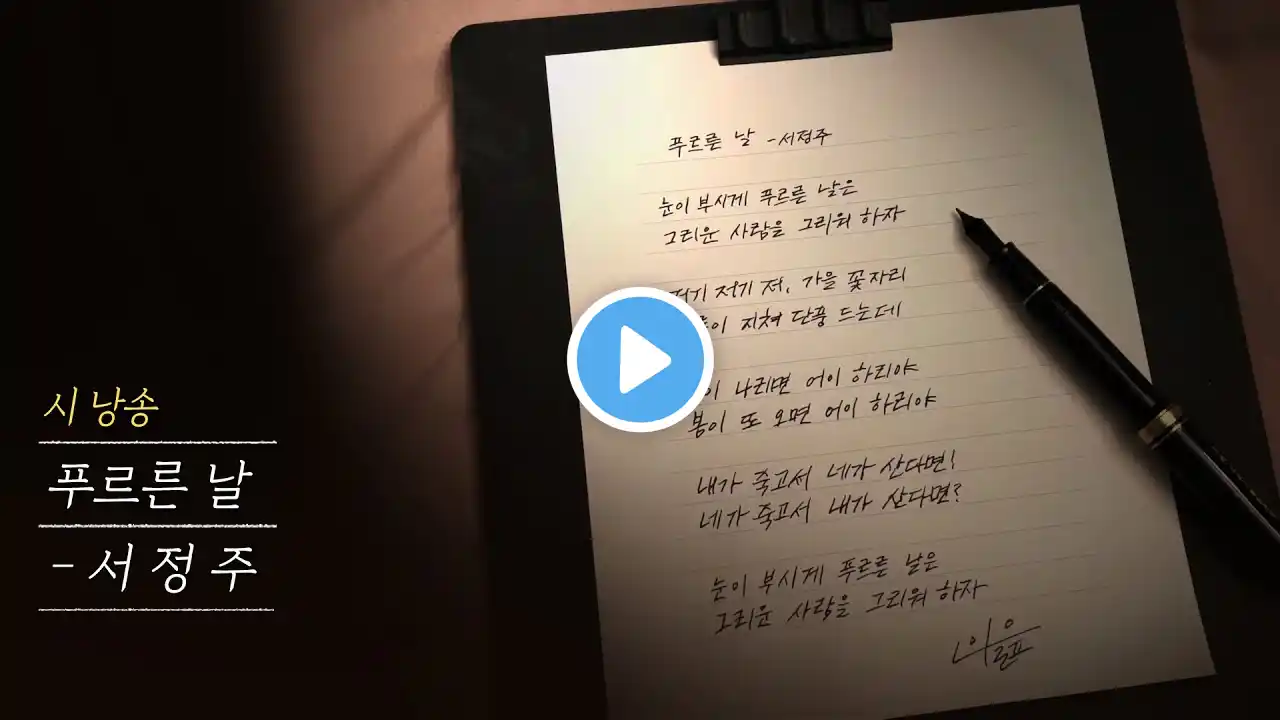 시 낭송
푸르른 날
- 서 정 주
푸르른 날 - 서정주
눈이 부시게 푸르른 날은
그리운 사람을 그리워 하자
저기 저기 저, 가을 꽃자리
지쳐 단풍 드는데
나리면 어이 하리야
봄이 또 오면 어이 하리야
내가 죽고서 네가 산다면!
네가 죽고서 내가 산다면?
눈이 부시게 푸르른 날은
그리운 사람을 그리워 하자